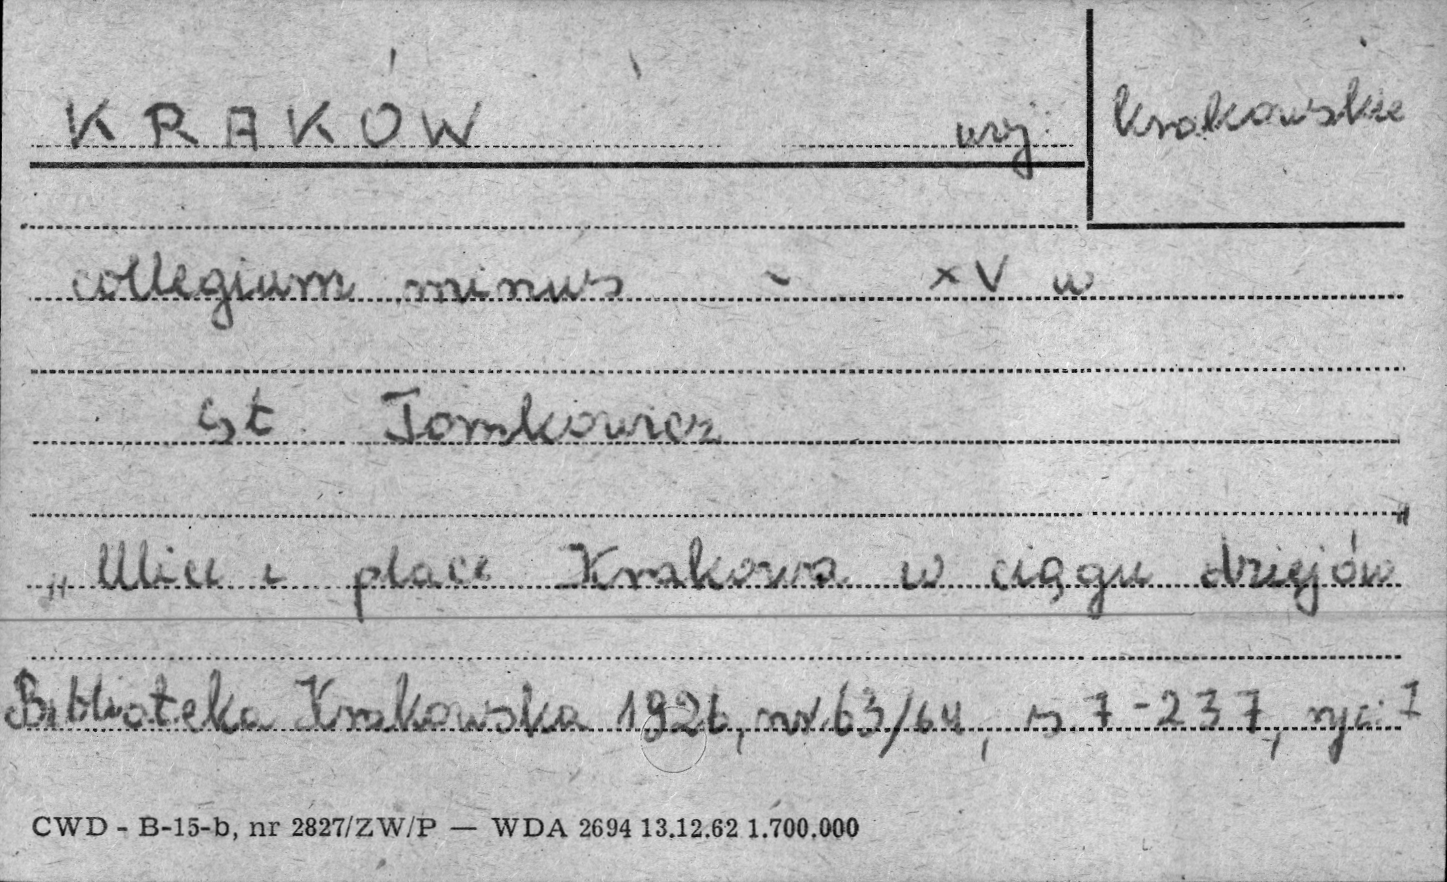 KRAKÓW woj. krakowskie
collegium minus - XV w
St. Tomkowicz
„Ulice i place Krakowa w ciągu dziejów"
Biblioteka Krakowska 1926, nr 63/64, s. 7-237, ryc. 7
CWD - B-15-b, nr 2827/ZW/P — WDA 2694 13.12.62 1.700.000